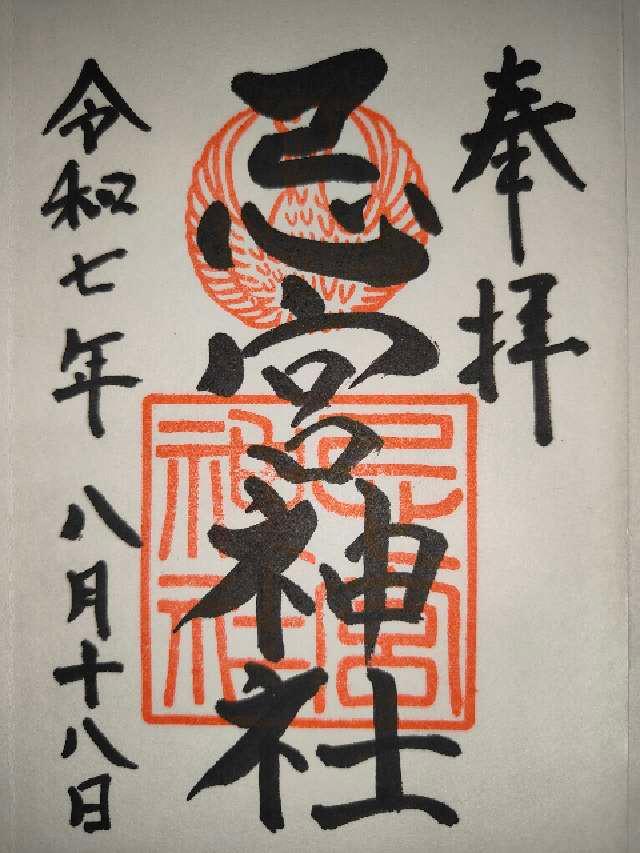 奉拝
忌宮神社
忌宮神社
令和七年 八月十八日